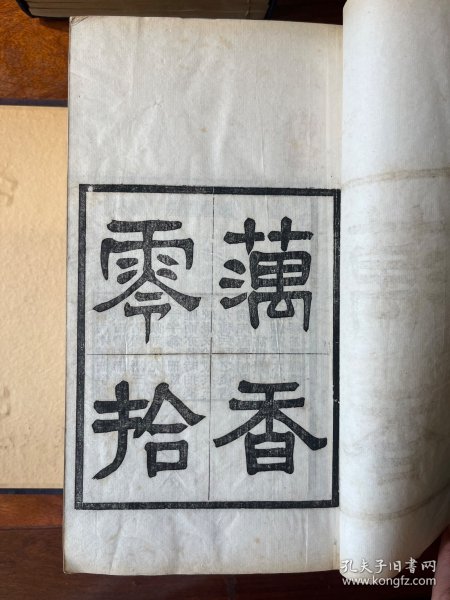 蕅香
零拾
孔夫子旧书网
www.kongfz.com